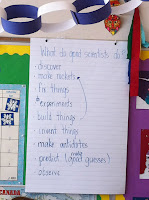 What do good scientists do?
• discover
• make rockets
• fix things
• experiments
• build things
• invent things
• make antidotes
• predict (good guesses)
• observe
CANADA